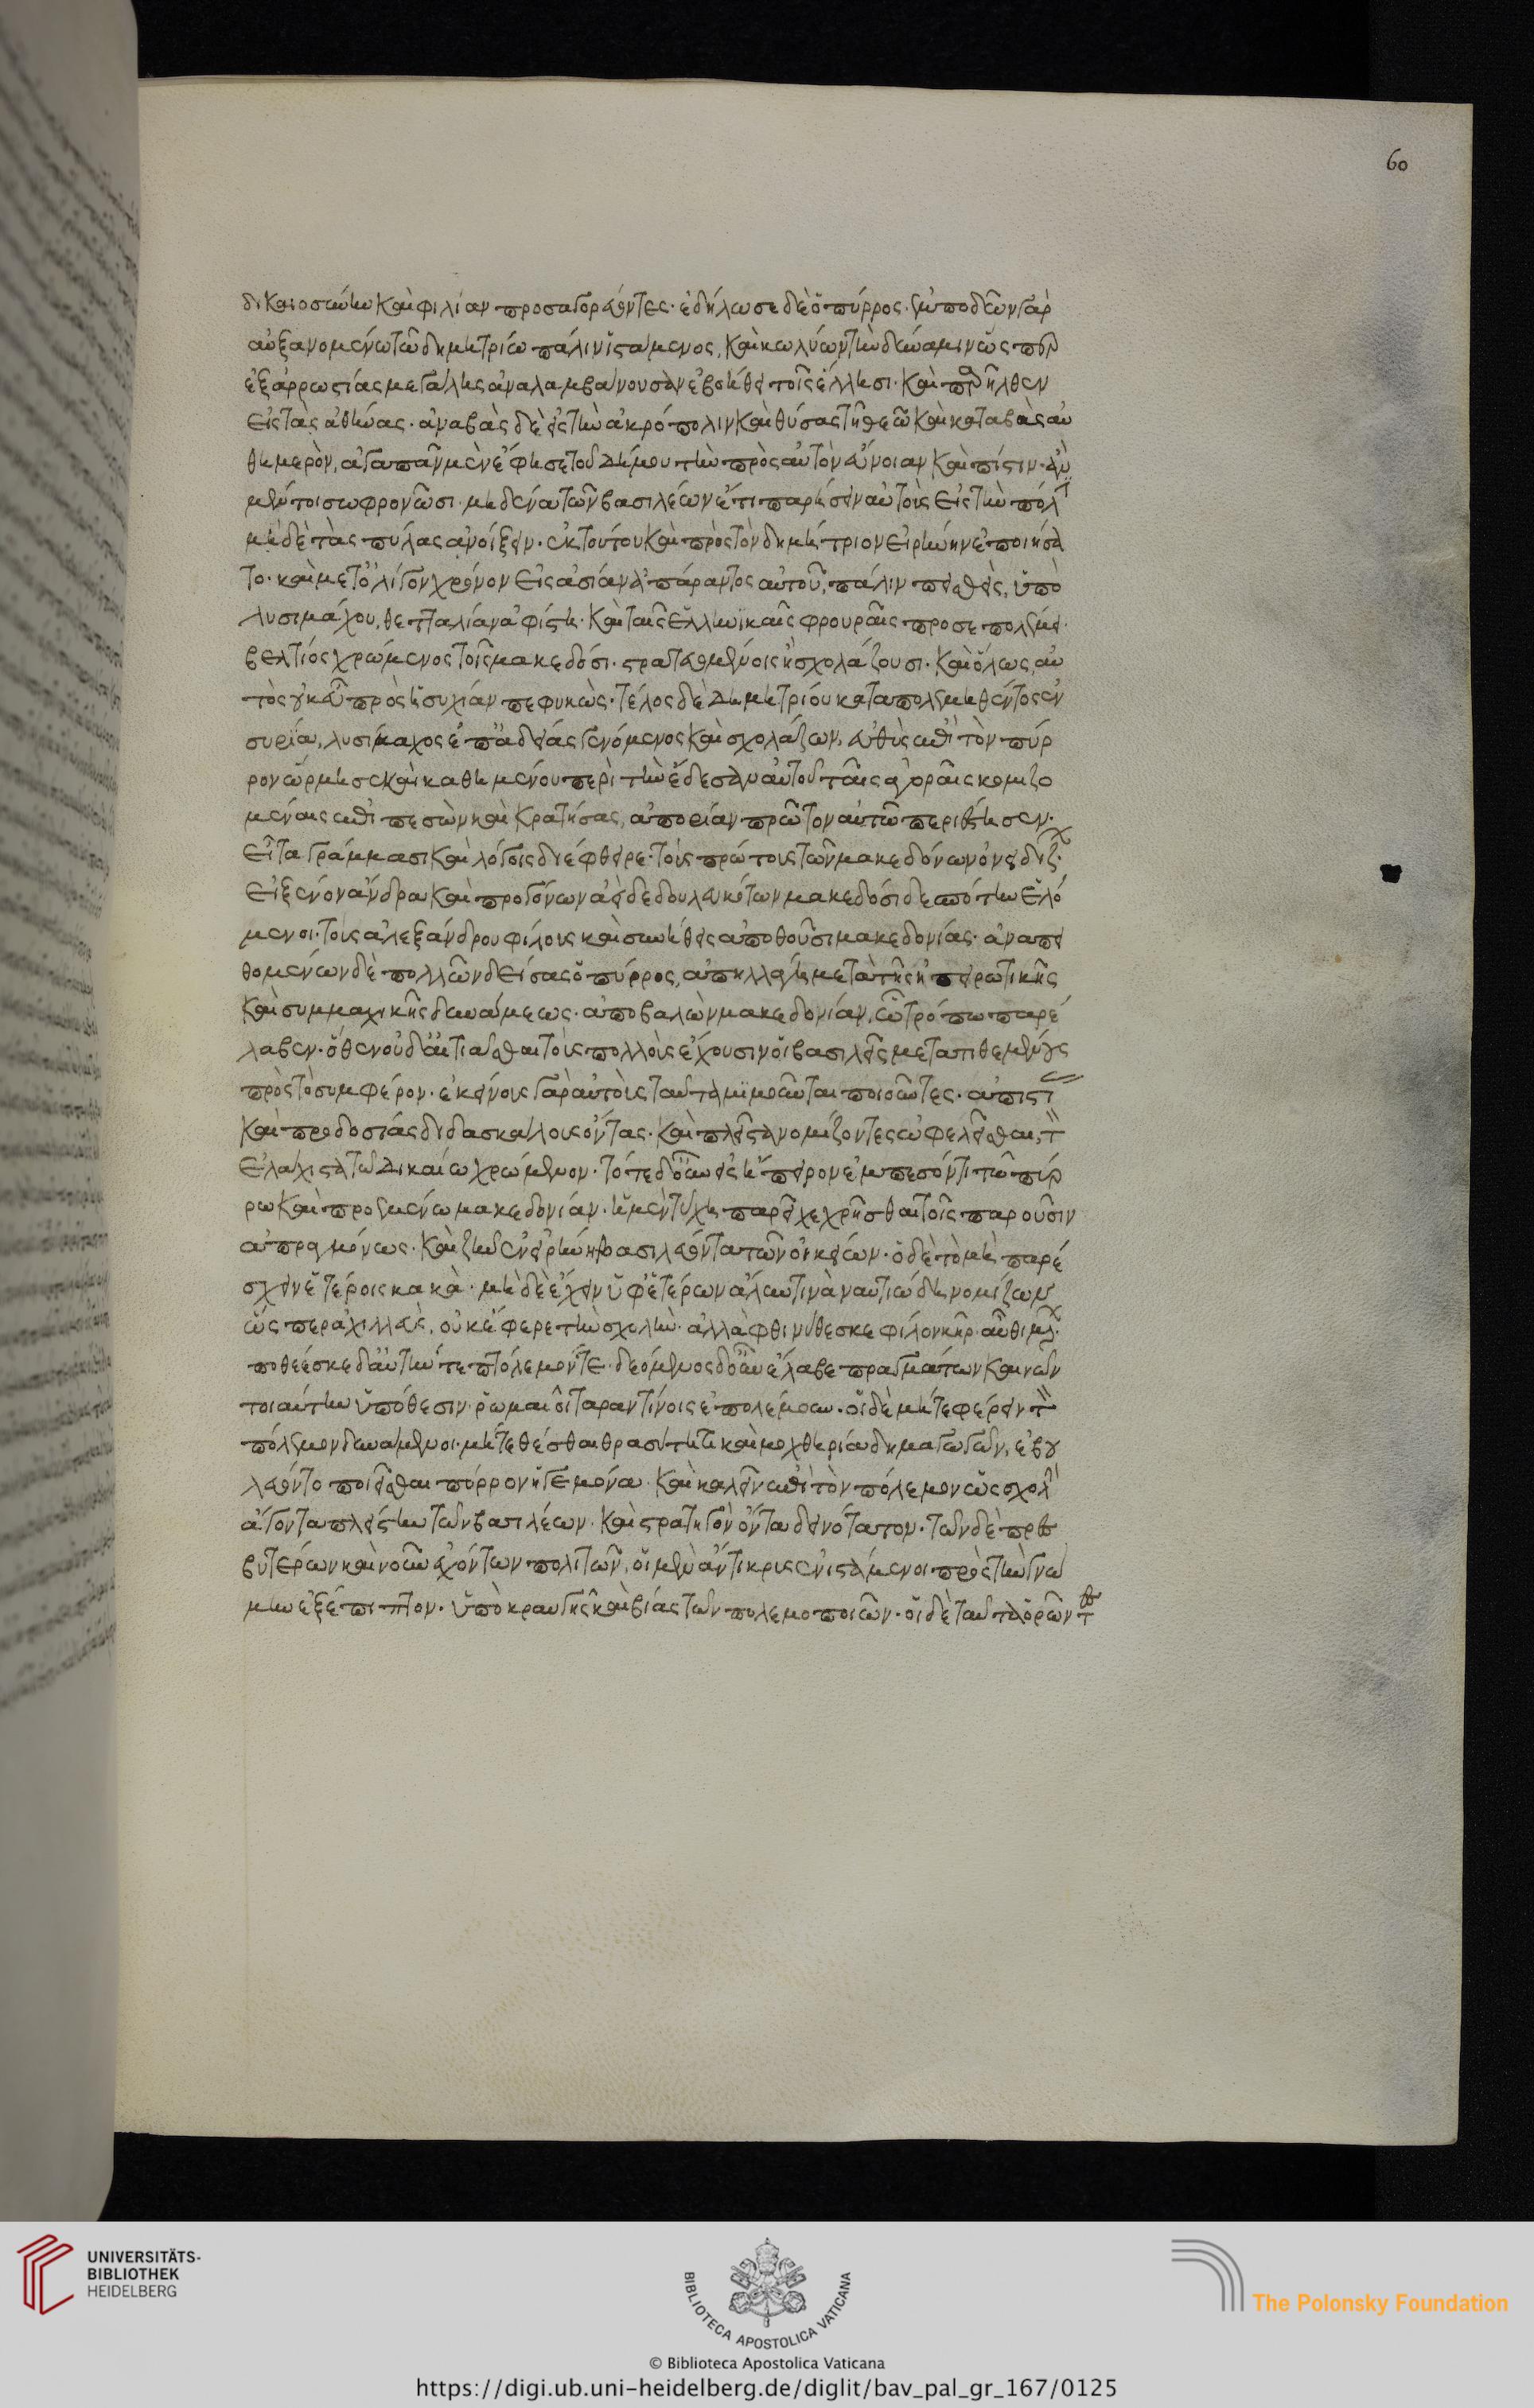 60
δικαιοσύνην καὶ φιλίαν προσαγορεύοντες· ἐδήλωσε δὲ ὁ πύρρος· ἐμποδὼν γὰρ
αὐξανομένω τῶ δημητρίω πάλιν ἱστάμενος, καὶ κωλύων τὴν δύναμιν ὥσπερ
ἐξ ἀρρωστίας μεγάλης ἀναλαμβάνουσαν ἐβοήθει τοῖς ἕλλησι· καὶ παρῆλθεν
εἰς τὰς ἀθήνας· ἀναβὰς δὲ εἰς τὴν ἀκρόπολιν καὶ θύσας τῆ θεῶ καὶ καταβὰς αὐ
θημερὸν, ἀγαπᾶν μὲν ἔφησε τοῦ δήμου τὴν πρὸς αὐτὸν εὔνοιαν καὶ πίστιν· ἂν
μέντοι σωφρονῶσι· μηδένα τῶν βασιλέων ἔτι παρήσειν αὐτοῖς εἰς τὴν πόλιν
μηδὲ τὰς πύλας ἀνοίξειν· ἐκ τούτου καὶ πρὸς τὸν δημήτριον εἰρήνην ἐποιήσα
το· καὶ μετ᾽ ὀλίγον χρόνον εἰς ἀσίαν ἀπάραντος αὐτοῦ, πάλιν πεισθεὶς, ὑπὸ
λυσιμάχου, θετταλίαν ἀφίστη· καὶ ταῖς ἑλληνικαῖς φρουραῖς προσεπολέμει·
βελτίοσι χρώμενος τοῖς μακεδόσι· στρατευομένοις ἢ σχολάζουσι· καὶ ὅλως, αὐ
τὸς οὐκ εὖ πρὸς ἡσυχίαν πεφυκὼς· τέλος δὲ δημητρίου καταπολεμηθέντος ἐν
συρία, λυσίμαχος ἐπ᾽ ἀδείας γενόμενος καὶ σχολάζων, εὐθὺς ἐπὶ τὸν πύρ
ρον ὥρμησε καὶ καθημένου περὶ τὴν ἔδεσαν αὐτοῦ ταῖς ἀγοραῖς κομιζο
μέναις ἐπιπεσὼν καὶ κρατήσας, ἀπορίαν πρῶτον αὐτῶ περιέστησεν·
εἶτα γράμμασι καὶ λόγοις διέφθειρε· τοὺς πρώτους τῶν μακεδόνων ὀνειδίζ·
εἰ ξένον ἄνδρα καὶ προγόνων ἀεὶ δεδουλευκότων μακεδόσι δεσπότην ἑλό
μενοι· τοὺς ἀλεξάνδρου φίλους καὶ συνήθεις ἀποθοῦσι μακεδονίας· ἀναπει
θομένων δὲ πολλῶν δείσας ὁ πύρρος, ἀπηλλάγη μετὰ τῆς ἠπειρωτικῆς
καὶ συμμαχικῆς δυνάμεως· ἀποβαλὼν μακεδονίαν, ὧ τρόπω παρέ
λαβεν· ὅθεν οὐδ᾽ αἰτιᾶσθαι τοὺς πολλοὺς ἔχουσιν οἱ βασιλεῖς μετατιθεμένους
πρὸς τὸ συμφέρον· ἐκείνους γὰρ αὐτοὺς ταῦτα μιμοῦνται ποιοῦντες· ἀπιστί
καὶ προδοσίας διδασκάλους ὄντας· καὶ πλεῖστα νομίζοντες ὠφελεῖσθαι, τ
ἐλάχιστα τῶ δικαίω χρώμενον· τότε δ᾽ οὖν εἰς ἤπειρον ἐκπεσόντι τῶ πύρ
ρω καὶ προεμένω μακεδονίαν· ἡ μὲν τύχη παρεῖχε χρῆσθαι τοῖς παροῦσιν
ἀπραγμόνως· καὶ ζῆν ἐν εἰρήνη βασιλεύοντα τῶν οἰκείων· ὁ δὲ τὸ μὴ παρέ
σχειν ἑτέροις κακὰ· μηδὲ ἔχειν ὑφ᾽ ἑτέρων ἄλυν τινὰ ναυτιώδη νομίζων
ὥσπερ ἀχιλλεὺς, οὐκ ἔφερε τὴν σχολὴν· ἀλλὰ φθινύθεσκε φίλον κῆρ· αὖθι μέν·
ποθέεσκε δ᾽ ἀϋτήν τε πτόλεμόν τε· δεόμενος δ᾽ οὖν ἔλαβε πραγμάτων καινῶν
τοιαύτην ὑπόθεσιν· ῥωμαῖοι ταραντίνοις ἐπολέμουν· οἱ δὲ μήτε φέρειν τὸν
πόλεμον δυνάμενοι· μήτε θέσθαι θρασύτητι καὶ μοχθηρία δημαγωγῶν, ἐβου
λεύοντο ποιεῖσθαι πύρρον ἡγεμόνα· καὶ καλεῖν ἐπὶ τὸν πόλεμον ὡς σχολὴν
ἄγοντα πλείστην τῶν βασιλέων· καὶ στρατηγὸν ὄντα δεινότατον· τῶν δὲ πρεσ
βυτέρων καὶ νοῦν ἐχόντων πολιτῶν, οἱ μὲν ἄντικρυς ἐνιστάμενοι πρὸς τὴν γνώ
μην ἐξέπιπτον· ὑπὸ κραυγῆς καὶ βίας τῶν πολεμοποιῶν· οἱ δὲ ταῦτα ὁρῶντ
UNIVERSITÄTS-
BIBLIOTHEK
HEIDELBERG
BIBLIOTECA APOSTOLICA VATICANA
The Polonsky Foundation
© Biblioteca Apostolica Vaticana
https://digi.ub.uni-heidelberg.de/diglit/bav_pal_gr_167/0125